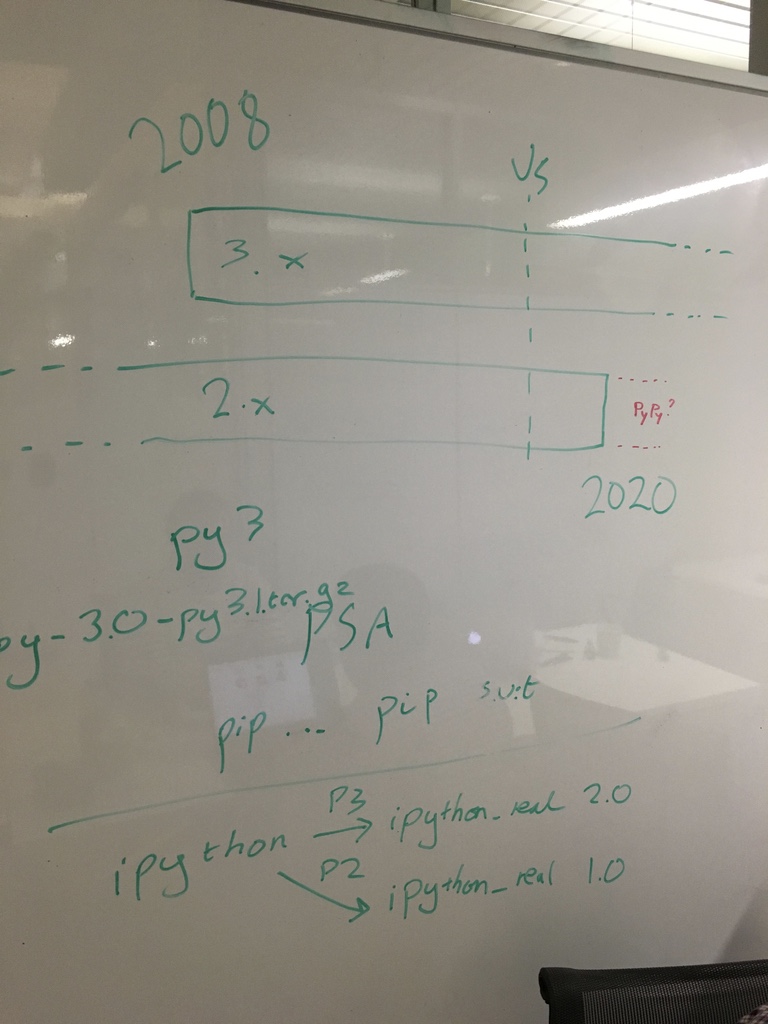 2008
US
3.x
2.x
PyPy?
2020
py3
py-3.0-py3.1.tar.gz
PSA
pip ... pip
ipython P3 → ipython_real 2.0
P2 → ipython_real 1.0